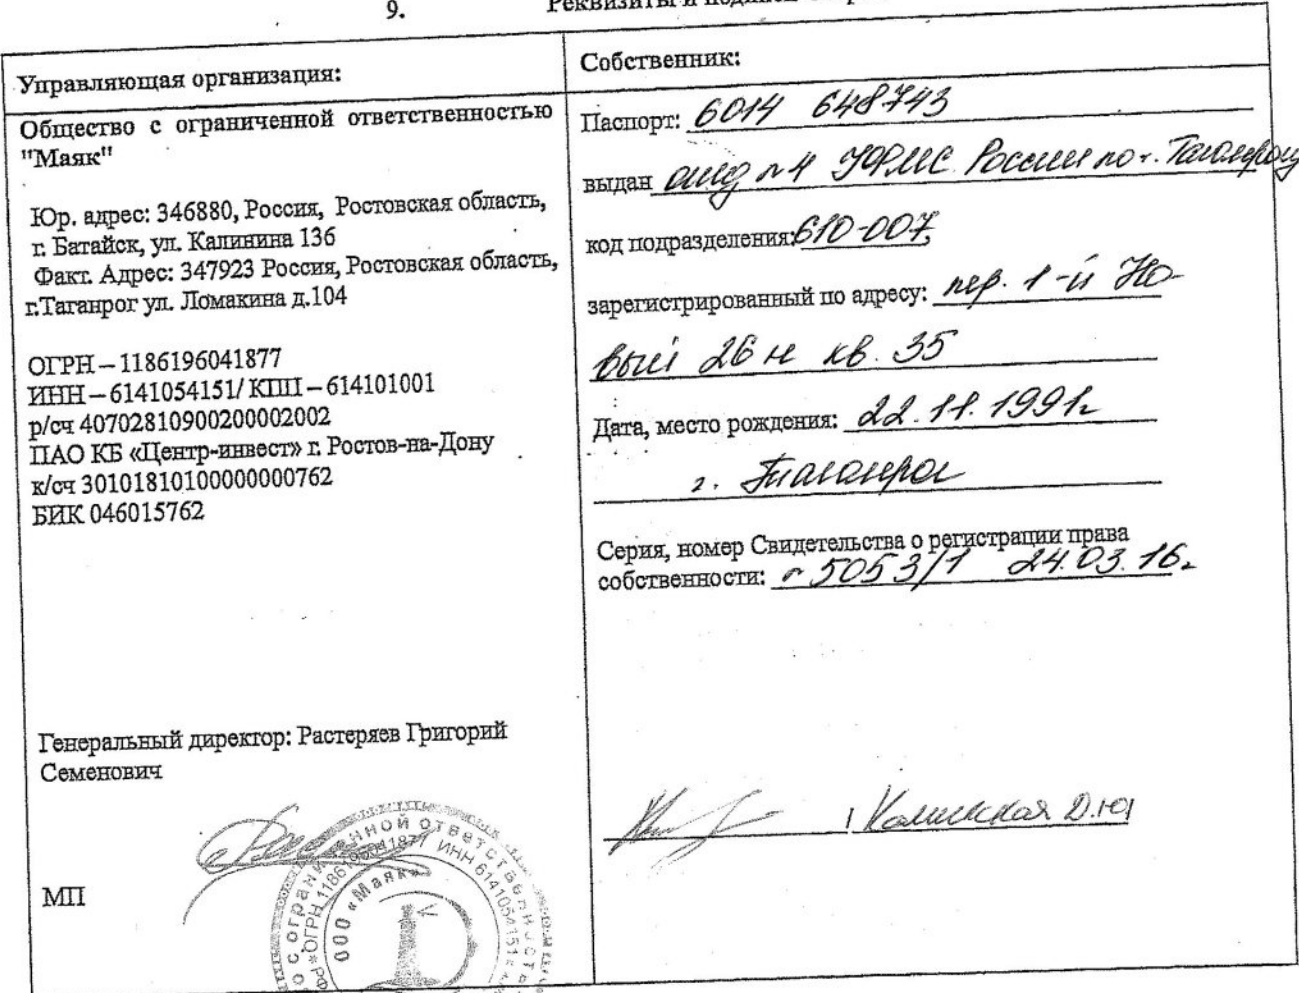 9. Реквизиты и подписи
Управляющая организация:
Общество с ограниченной ответственностью
"Маяк"
Юр. адрес: 346880, Россия, Ростовская область,
г. Батайск, ул. Калинина 136
Факт. Адрес: 347923 Россия, Ростовская область,
г.Таганрог ул. Ломакина д.104
ОГРН – 1186196041877
ИНН – 6141054151/ КПП – 614101001
р/сч 40702810900200002002
ПАО КБ «Центр-инвест» г. Ростов-на-Дону
к/сч 30101810100000000762
БИК 046015762
Генеральный директор: Растеряев Григорий
Семенович
МП
ООО «Маяк»
Собственник:
Паспорт: 6014 648743
выдан отд №4 УФМС России по г. Таганрогу
код подразделения: 610-007,
зарегистрированный по адресу: пер. 1-й Но-
вый 26 н кв. 35
Дата, место рождения: 22.11.1991г
г. Таганрог
Серия, номер Свидетельства о регистрации права
собственности: №5053/1 24.03.16г
Д.Ю/